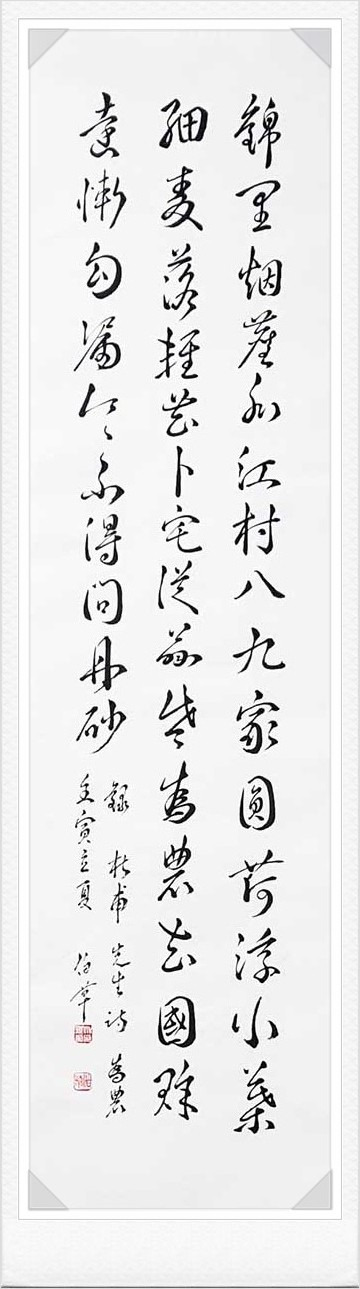 錦里烟塵外江村八九家圓荷浮小葉
細麦落輕花卜宅從茲老為農去國賒
遠慚勾漏令不得問丹砂
錄杜甫先生詩為農
壬寅立夏